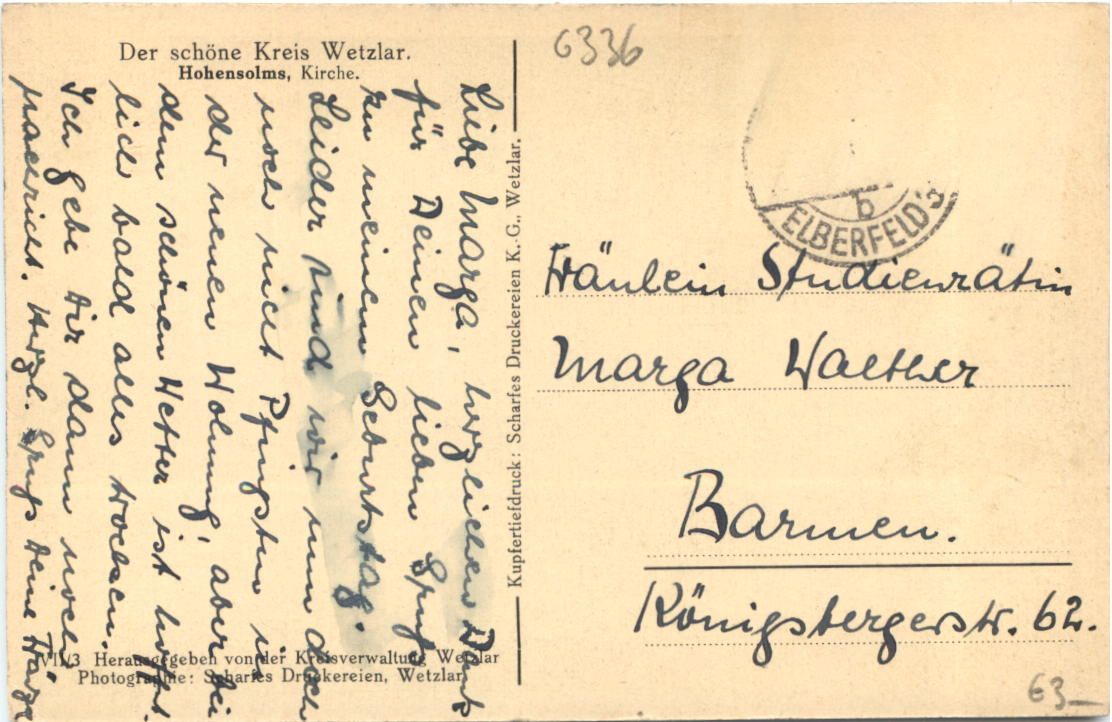 Der schöne Kreis Wetzlar.
Hohensolms, Kirche.
Liebe Marga, herzlichen Dank
für Deinen lieben Gruß
zu meinem Geburtstag.
Leider sind wir nun doch
noch nicht Pfingsten in
der neuen Wohnung, aber bei
dem schönen Wetter ist
lich bald alles trocken.
Ich gebe Dir dann noch
Nachricht. Herzl. Deine
VII/3 Herausgegeben von der Kreisverwaltung Wetzlar
Photographie: Scharfes Druckereien, Wetzlar
Kupfertiefdruck: Scharfes Druckereien K.-G., Wetzlar.
6336
ELBERFELD
b
Fräulein Studienrätin
Marga Walther
Barmen.
Königsbergerstr. 62.
63